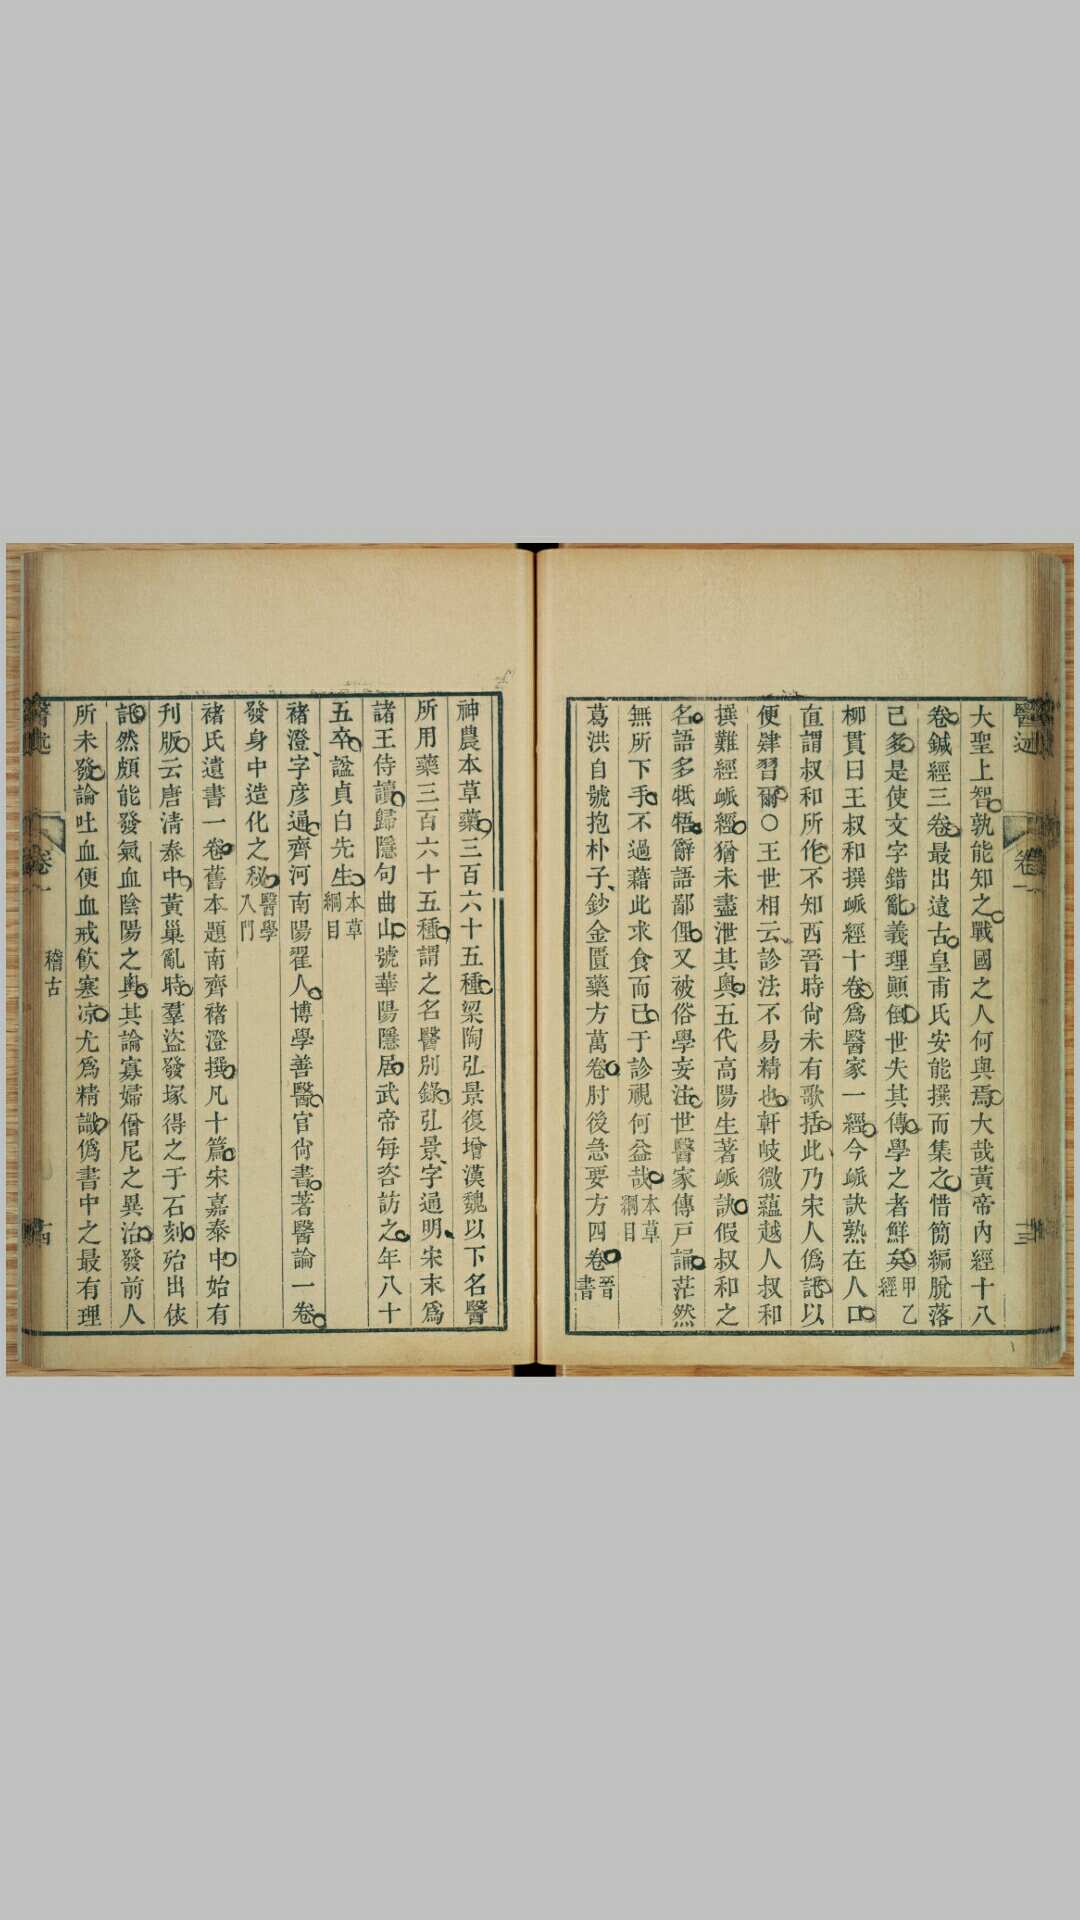 醫述
卷一
十三
大聖上智孰能知之戰國之人何與焉大哉黃帝內經十八
卷鍼經三卷最出遠古皇甫氏安能撰而集之惜簡編脫落
已多是使文字錯亂義理顚倒世失其傳學之者鮮矣甲乙經
柳貫曰王叔和撰𧖴經十卷爲醫家一經今𧖴訣熟在人口
直謂叔和所作不知西晉時尙未有歌括此乃宋人僞託以
便肄習爾○王世相云診法不易精也軒岐微蘊越人叔和
撰難經𧖴經猶未盡泄其奧五代高陽生著𧖴訣假叔和之
名語多牴牾辭語鄙俚又被俗學妄注世醫家傳戸誦茫然
無所下手不過藉此求食而已于診視何益哉本草綱目
葛洪自號抱朴子鈔金匱藥方萬卷肘後急要方四卷晉書
神農本草藥三百六十五種梁陶弘景復增漢魏以下名醫
所用藥三百六十五種謂之名醫別錄弘景字通明宋末爲
諸王侍讀歸隱句曲山號華陽隱居武帝每咨訪之年八十
五卒諡貞白先生本草綱目
褚澄字彦通齊河南陽翟人博學善醫官尙書著醫論一卷
發身中造化之秘醫學入門
褚氏遺書一卷舊本題南齊褚澄撰凡十篇宋嘉泰中始有
刊版云唐清泰中黃巢亂時羣盜發塚得之于石刻殆出依
託然頗能發氣血陰陽之奧其論寡婦僧尼之異治發前人
所未發論吐血便血戒飮寒凉尤爲精識僞書中之最有理
醫述
卷一
稽古
十四